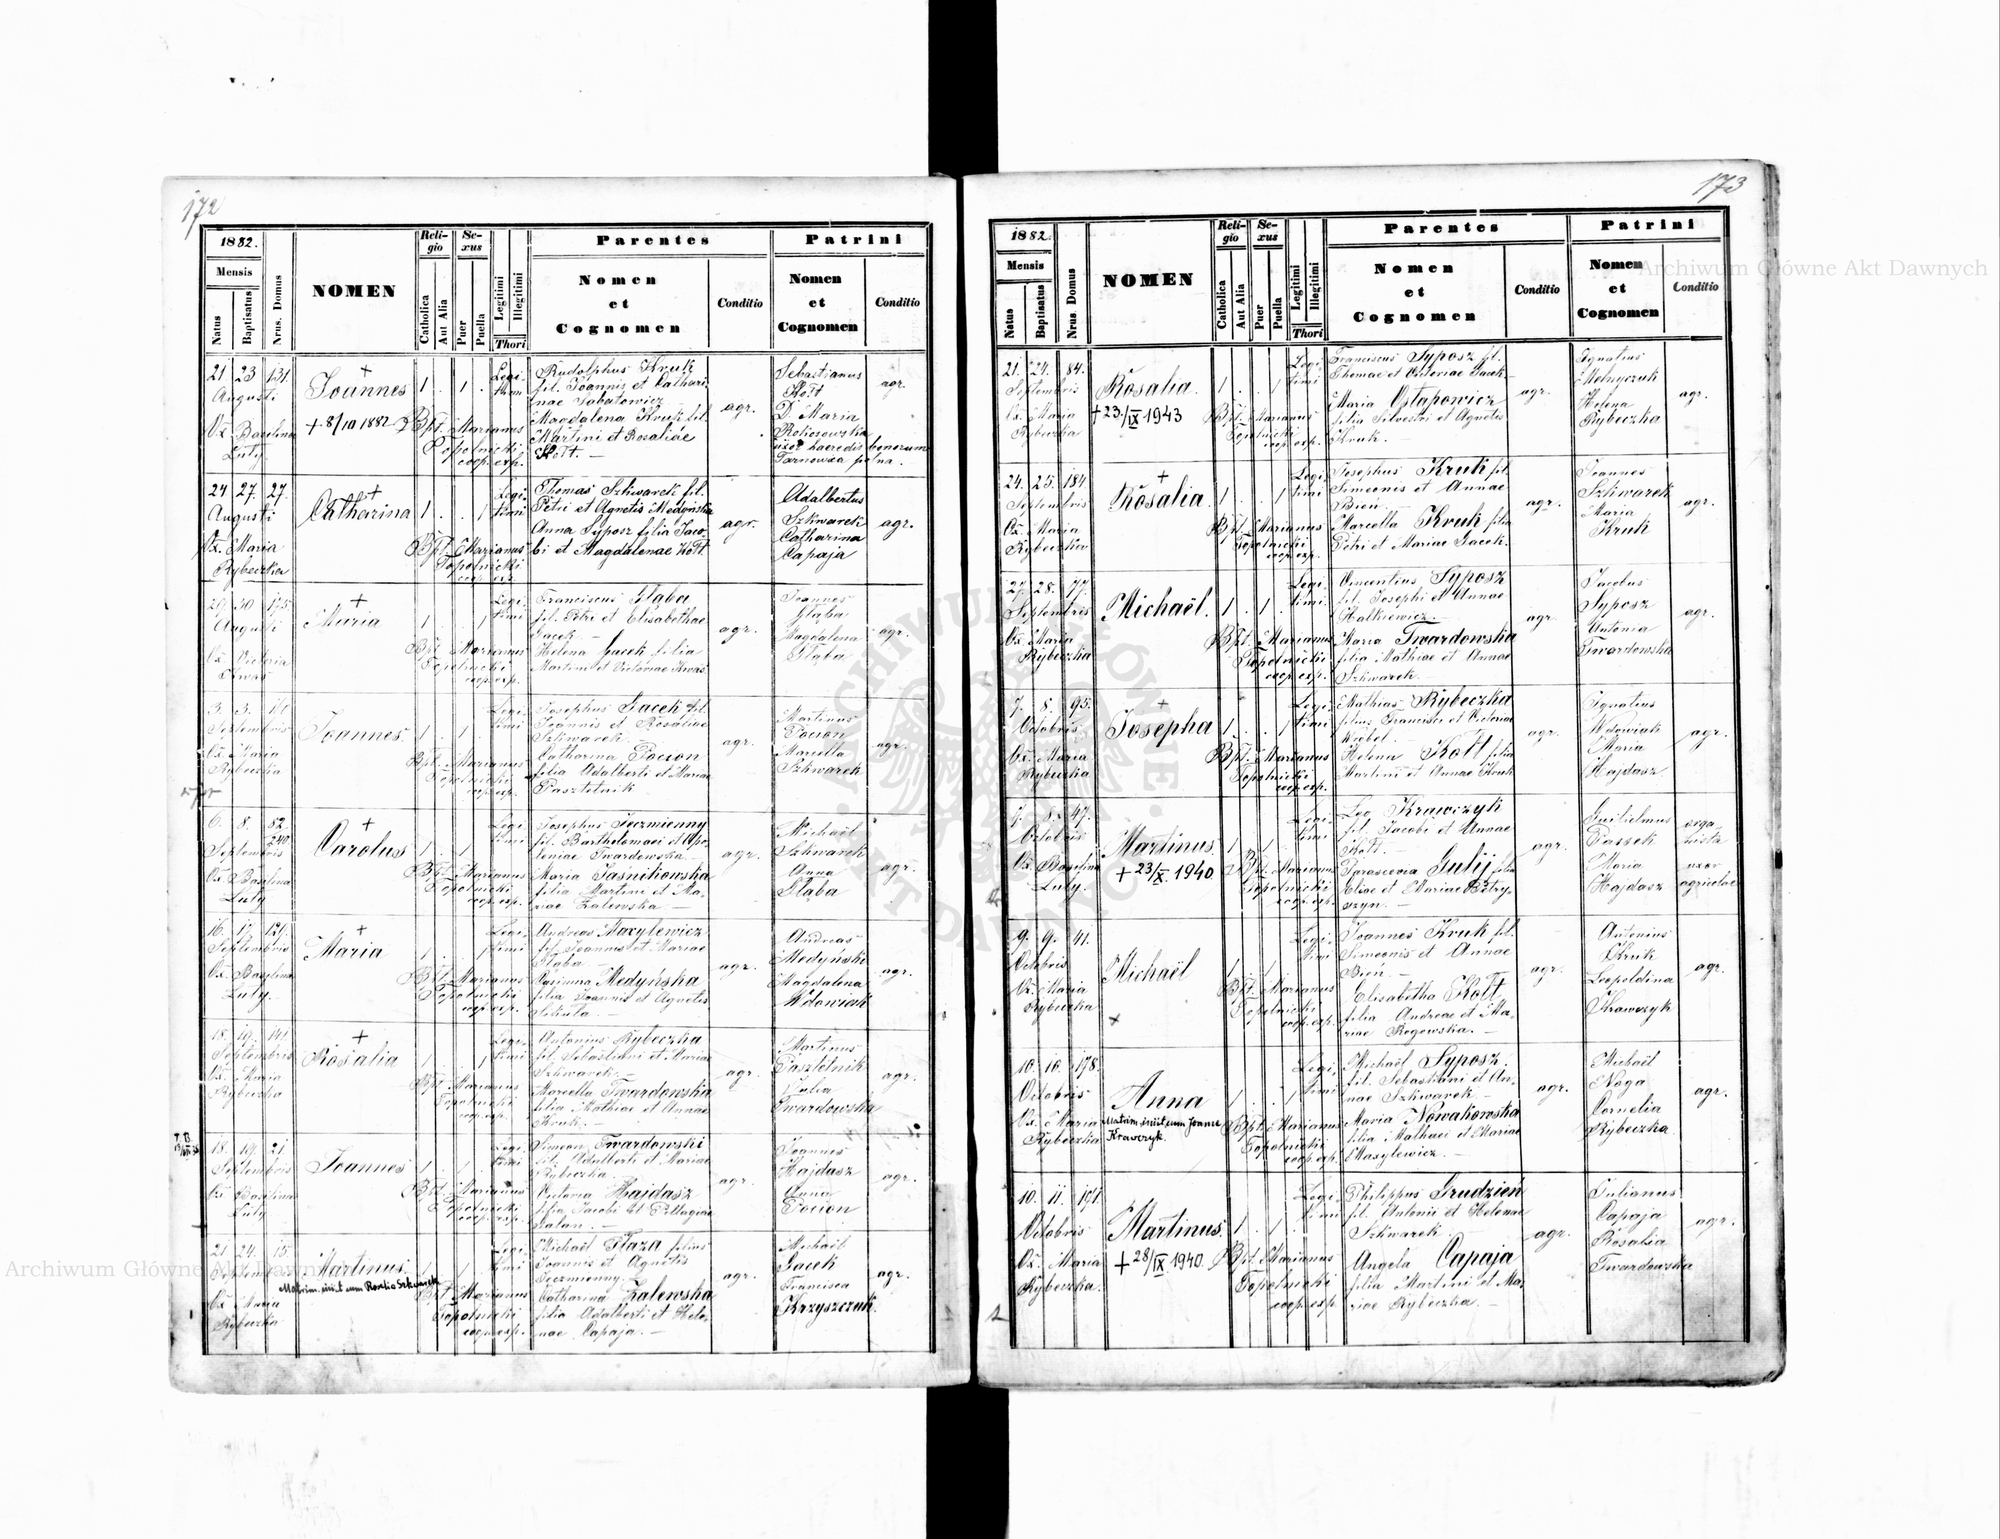 172
1882.
Mensis
Natus
Baptisatus
Nrus. Domus
NOMEN
Reli-
gio
Catholica
Aut Alia
Se-
xus
Puer
Puella
Legitimi
Illegitimi
Thori
Parentes
Nomen
et
Cognomen
Conditio
Patrini
Nomen
et
Cognomen
Conditio
21 23 131.
Augusti
Ox. Basilina
Luty
Joannes
+ 8/10 1882
1 . 1 .
Legi-
timi
Bpt. Marianus
Topolnicki
coop. exp.
Rudolphus Kruk
fil. Joannis et Cathari-
nae Sabatowicz
Magdalena Kruk fil.
Martini et Rosaliae
Kott. —
agr.
Sebastianus
Kott
D. Maria
uxor haeredis bonorum
agr.
24 27. 27.
Augusti
Ox. Maria
Rybeczka
Catharina
1 . . 1
Legi-
timi
Bpt. Marianus
Topolnicki
coop. exp.
Thomas Szkwarek fil.
Petri et Agnetis Medyńska
Anna Syposz filia Jaco-
bi et Magdalenae Kott.
agr.
Adalbertus
Szkwarek
Catharina
Capaja
agr.
29. 30 175
Augusti
Ox. Victoria
Kwas
Maria
1 . . 1
Legi-
timi
Bpt. Marianus
Topolnicki
coop. exp.
Franciscus Głąba
fil. Petri et Elisabethae
Gacek —
Helena Gacek filia
Martini et Victoriae Kwas
agr.
Joannes
Głąba
Magdalena
Głąba
agr.
3. 3.
Septembris
Ox. Maria
Rybeczka
Joannes
1 . 1 .
Legi-
timi
Bpt. Marianus
Topolnicki
coop. exp.
Josephus Gacek fil.
Joannis et Rosaliae
Szkwarek. —
Catharina Pocion
filia Adalberti et Mariae
Pasztetnik
agr.
Martinus
Pocion
Marcella
Szkwarek
agr.
6. 8. 82.
240
Septembris
Ox. Basilina
Luty
Carolus
1 . 1 .
Legi-
timi
Bpt. Marianus
Topolnicki
coop. exp.
Josephus Jeczmienny
fil. Bartholomaei et Apo-
loniae Twardowska —
Maria Jasnikowska
filia Martini et Ma-
riae Zalewska —
agr.
Michaël
Szkwarek
Anna
Głąba
agr.
16. 17. 129.
Septembris
Ox. Basilina
Luty.
Maria
1 . . 1
Legi-
timi
Bpt. Marianus
Topolnicki
coop. exp.
Andreas Maxylewicz
fil. Joannis et Mariae
Głąba —
Medyńska
filia Joannis et Agnetis
Sikuta. —
agr.
Andreas
Medyński
Magdalena
Wdowiak
agr.
18. 19. 141.
Septembris
Ox. Maria
Rybeczka
Rosalia
1 . . 1
Legi-
timi
Bpt. Marianus
Topolnicki
coop. exp.
Antonius Rybeczka
fil. Sebastiani et Mariae
Szkwarek. —
Marcella Twardowska
filia Mathiae et Annae
Kruk. —
agr.
Martinus
Pasztetnik
Julia
Twardowska
agr.
18. 19. 21.
Septembris
Ox. Basilina
Luty
Joannes
1 . 1 .
Legi-
timi
Bpt. Marianus
Topolnicki
coop. exp.
Simeon Twardowski
fil. Adalberti et Mariae
Rybeczka.
Victoria Hajdasz
filia Jacobi et Pellagiae
Balan. —
agr.
Joannes
Hajdasz
Anna
Pocion
agr.
21. 24. 15
Septembris
Ox. Maria
Rybeczka
Martinus.
Matrim. iniit cum Rosalia Szkwarek
1 . 1 .
Legi-
timi
Bpt. Marianus
Topolnicki
coop. exp.
Michaël Płaza filius
Joannis et Agnetis
Jeczmienny. —
Catharina Zalewska
filia Adalberti et Hele-
nae Capaja. —
agr.
Michaël
Gacek
Francisca
Krzyszczuk
agr.
173
1882.
Mensis
Natus
Baptisatus
Nrus. Domus
NOMEN
Reli-
gio
Catholica
Aut Alia
Se-
xus
Puer
Puella
Legitimi
Illegitimi
Thori
Parentes
Nomen
et
Cognomen
Conditio
Patrini
Nomen
et
Cognomen
Conditio
21. 24. 84.
Septembris
Ox. Maria
Rybeczka
Rosalia
+ 23./IX 1943
1 . . 1
Legi-
timi
Bpt. Marianus
Topolnicki
coop. exp.
Franciscus Syposz fil.
Thomae et Victoriae Gacek. —
Maria Ostapowicz
filia Silvestri et Agnetis
Kruk. —
agr.
Ignatius
Melnyczuk
Helena
Rybeczka
agr.
24. 25. 184
Septembris
Ox. Maria
Rybeczka
Rosalia
1 . . 1
Legi-
timi
Bpt. Marianus
Topolnicki
coop. exp.
Josephus Kruk fil.
Simeonis et Annae
Bień. —
Marcella Kruk filia
Petri et Mariae Gacek.
agr.
Joannes
Szkwarek
Maria
Kruk
agr.
27. 28. 77.
Septembris
Ox. Maria
Rybeczka
Michaël.
1 . 1 .
Legi-
timi.
Bpt. Marianus
Topolnicki
coop. exp.
Vincentius Syposz
fil. Josephi et Annae
Halkiewicz. —
Maria Twardowska
filia Mathiae et Annae
Szkwarek —
agr.
Jacobus
Syposz
Antonia
Twardowska
agr.
7. 8. 95.
Octobris
Ox. Maria
Rybeczka
Josepha
1 . . 1
Legi-
timi
Bpt. Marianus
Topolnicki
coop. exp.
Mathias Rybeczka
filius Francisci et Victoriae
Wrobel. —
Helena Kott filia
Martini et Annae Kruk
agr.
Ignatius
Wdowiak
Maria
Hajdasz
agr.
7. 8. 47.
Octobris
Ox. Basilina
Luty.
Martinus
+ 23/X. 1940
1 . 1 .
Legi-
timi
Bpt. Marianus
Topolnicki
coop. exp.
Leo Krawczyk
fil. Jacobi et Annae
Kott. —
Parascevia Gulij filia
Eliae et Mariae Petry-
szyn. —
agr.
Guilielmus
Passek
Maria
Hajdasz
orga-
nista
uxor
agricolae
9. 9. 41.
Octobris
Ox. Maria
Rybeczka
Michaël
1 . 1 .
Legi-
timi
Bpt. Marianus
Topolnicki
coop. exp.
Joannes Kruk fil.
Simeonis et Annae
Bień. —
Elisabetha Kott
filia Andreae et Ma-
riae Rogowska. —
agr.
Antonius
Kruk
Leopoldina
Krawczyk
agr.
10. 10. 178.
Octobris
Ox. Maria
Rybeczka
Anna
Matrim. iniit cum Joanne
Krawczyk.
1 . . 1
Legi-
timi
Bpt. Marianus
Topolnicki
coop. exp.
Michaël Syposz.
fil. Sebastiani et An-
nae Szkwarek —
Maria Nowakowska
filia Mathaei et Mariae
Maxylewicz. —
agr.
Michaël
Noga
Cornelia
Rybeczka
agr.
10. 11. 171.
Octobris
Ox. Maria
Rybeczka.
Martinus.
+ 28/IX 1940.
1 . 1 .
Legi-
timi
Bpt. Marianus
Topolnicki
coop. exp.
Philippus Grudzień
fil. Antonii et Helenae
Szkwarek —
Angela Capaja
filia Martini et Ma-
riae Rybeczka. —
agr.
Julianus
Capaja
Rosalia
Twardowska
agr.
Archiwum Główne Akt Dawnych
Archiwum Główne Akt Dawnych
ARCHIWUM GŁÓWNE AKT DAWNYCH